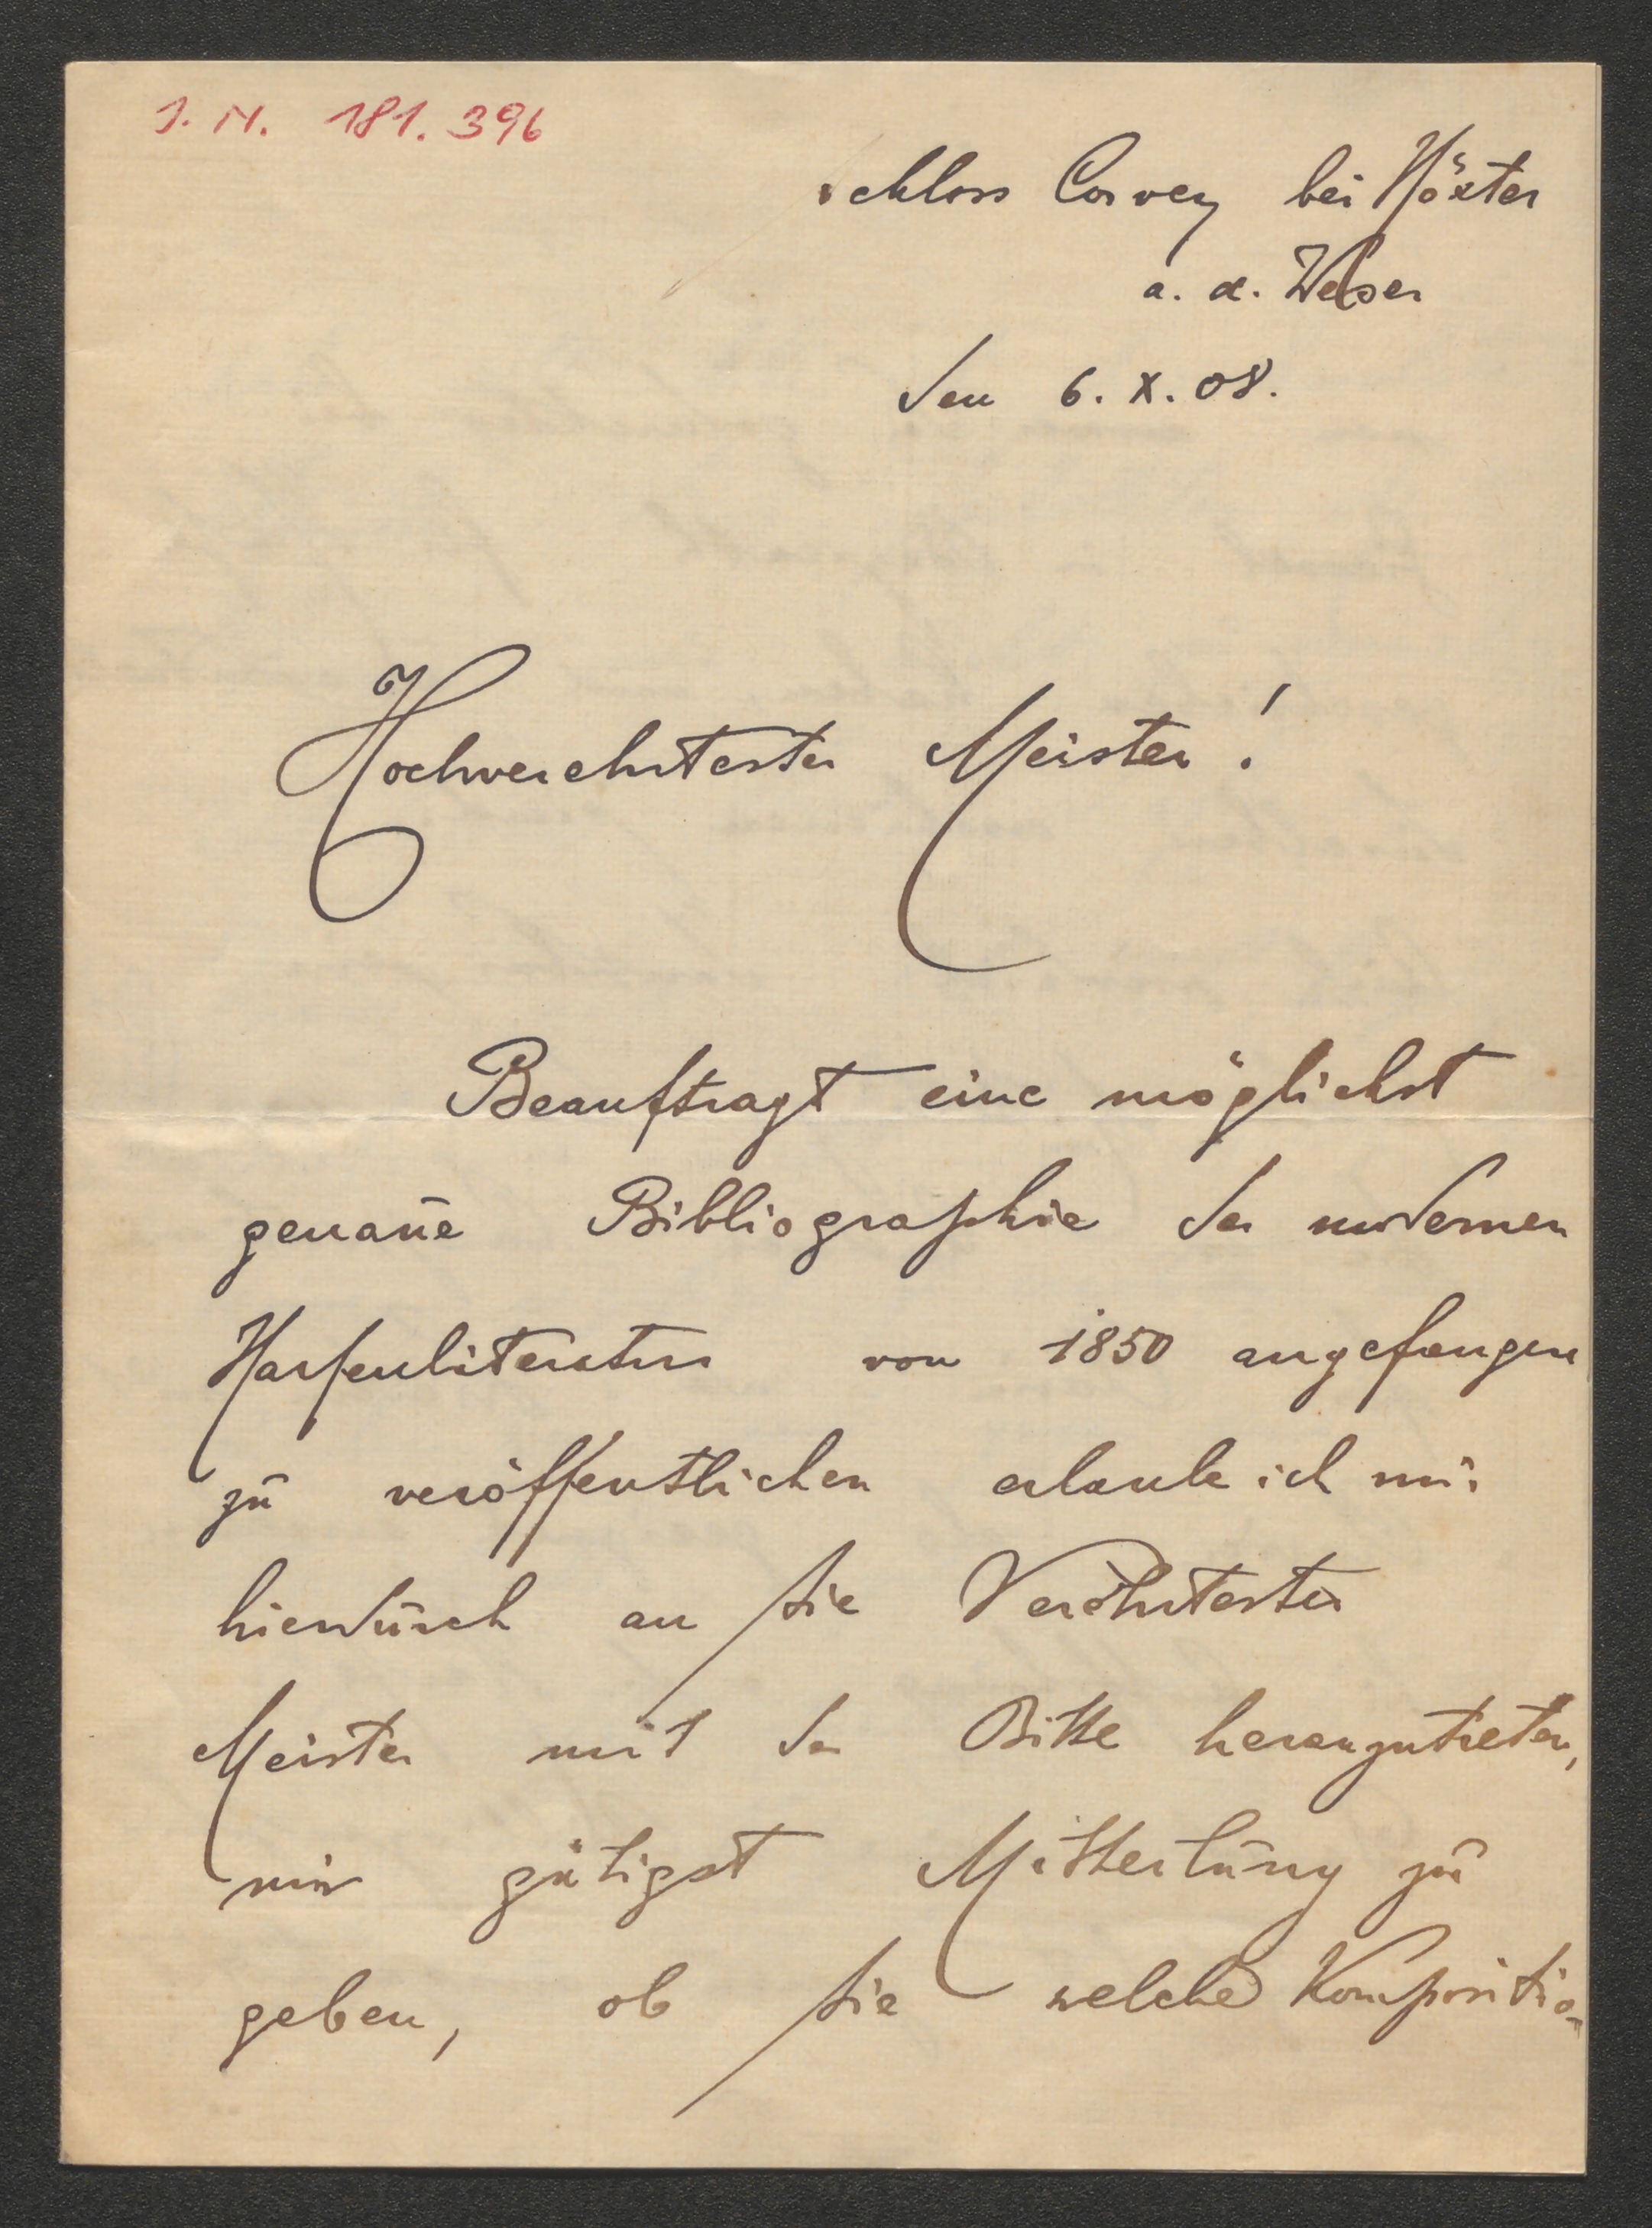 J. N. 181.396
Schloss Corvey bei Höxter
a. d. Weser
den 6. X. 08.
Hochverehrtester Meister!
Beauftragt eine möglichst
genaue Bibliographie der modernen
Harfenliteratur von 1850 angefangen
zu veröffentlichen erlaube ich mir
hierdurch an Sie Verehrtester
Meister mit der Bitte heranzutreten,
mir gütigst Mitteilung zu
geben, ob Sie welche Kompositio-